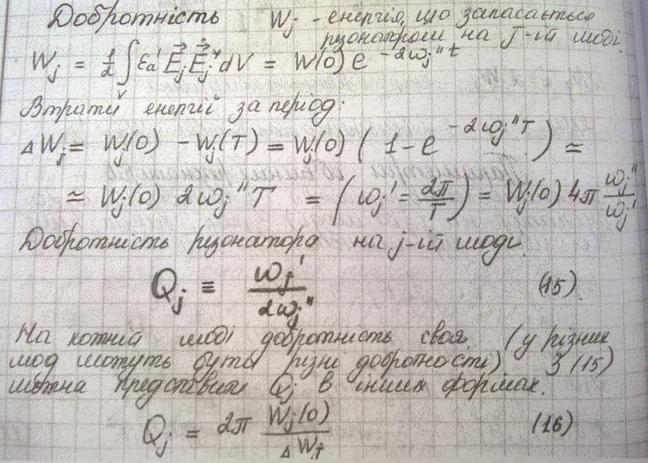 Добротність Wj - енергія, що запасається
резонатором на j-ій моді.
Wj = 1/2 ∫ εa' E⃗j E⃗j* dV = W(0) e^(-2ωj'' t)
V
Втрати енергії за період:
ΔWj = Wj(0) - Wj(T) = Wj(0) (1 - e^(-2ωj'' T)) ≃
≃ Wj(0) 2ωj'' T = (ωj' = 2π/T) = Wj(0) 4π ωj''/ωj'
Добротність резонатора на j-ій моді.
Qj ≡ ωj'/2ωj'' (15).
На кожній моді добротність своя. (у різних
мод можуть бути різні добротности) З (15)
можна представити Qj в інших формах.
Qj = 2π Wj(0)/ΔWj (16)